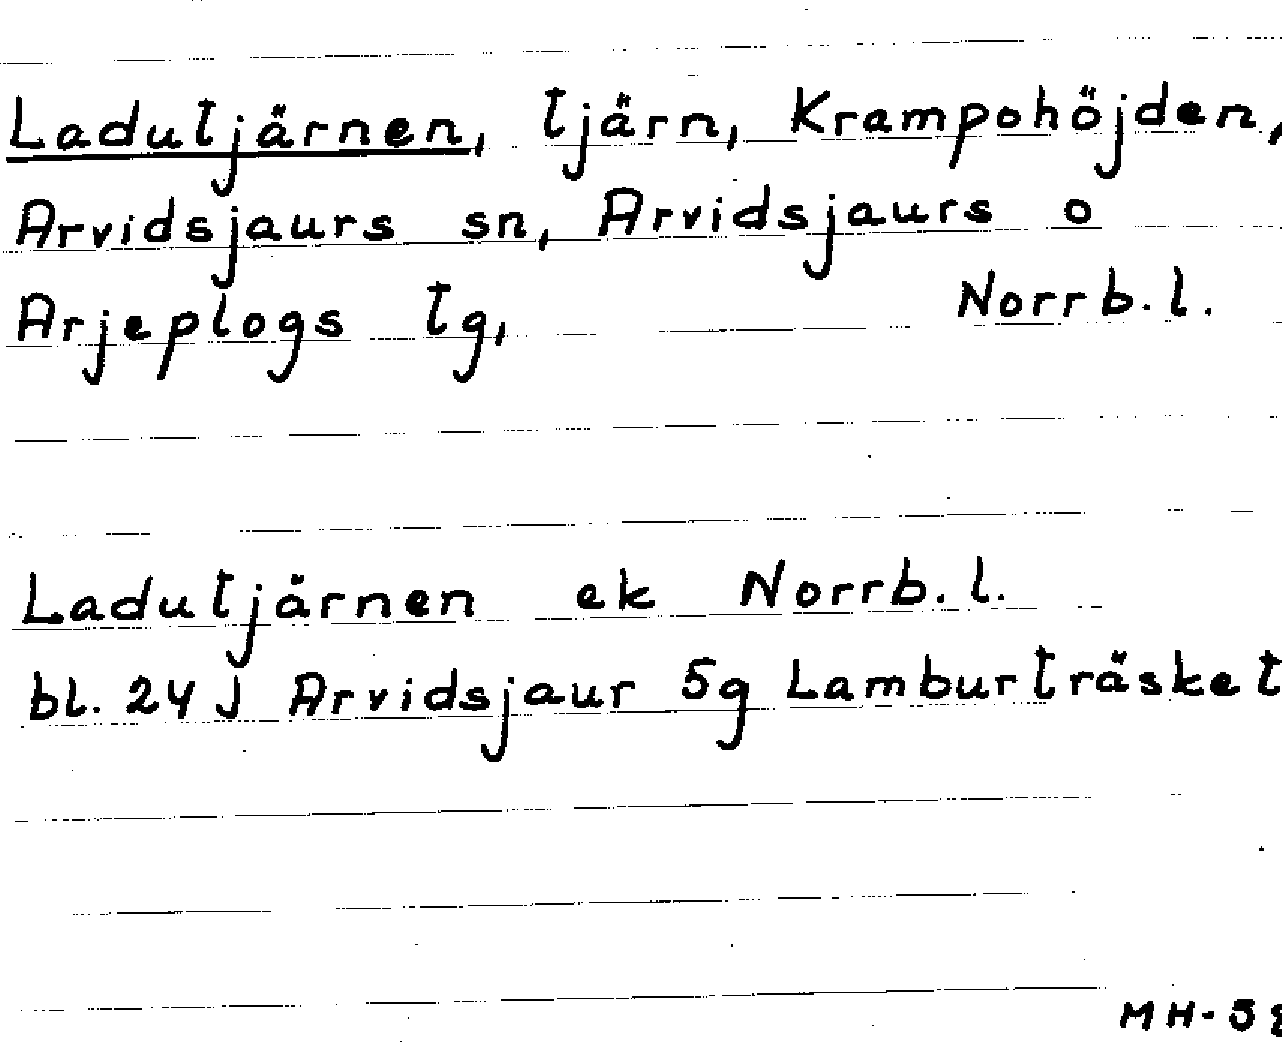 Ladutjärnen, tjärn, Krampohöjden,
Arvidsjaurs sn, Arvidsjaurs o
Arjeplogs tg, Norrb.l.
Ladutjärnen ek Norrb.l.
bl. 24 J Arvidsjaur 5g Lamburträsket